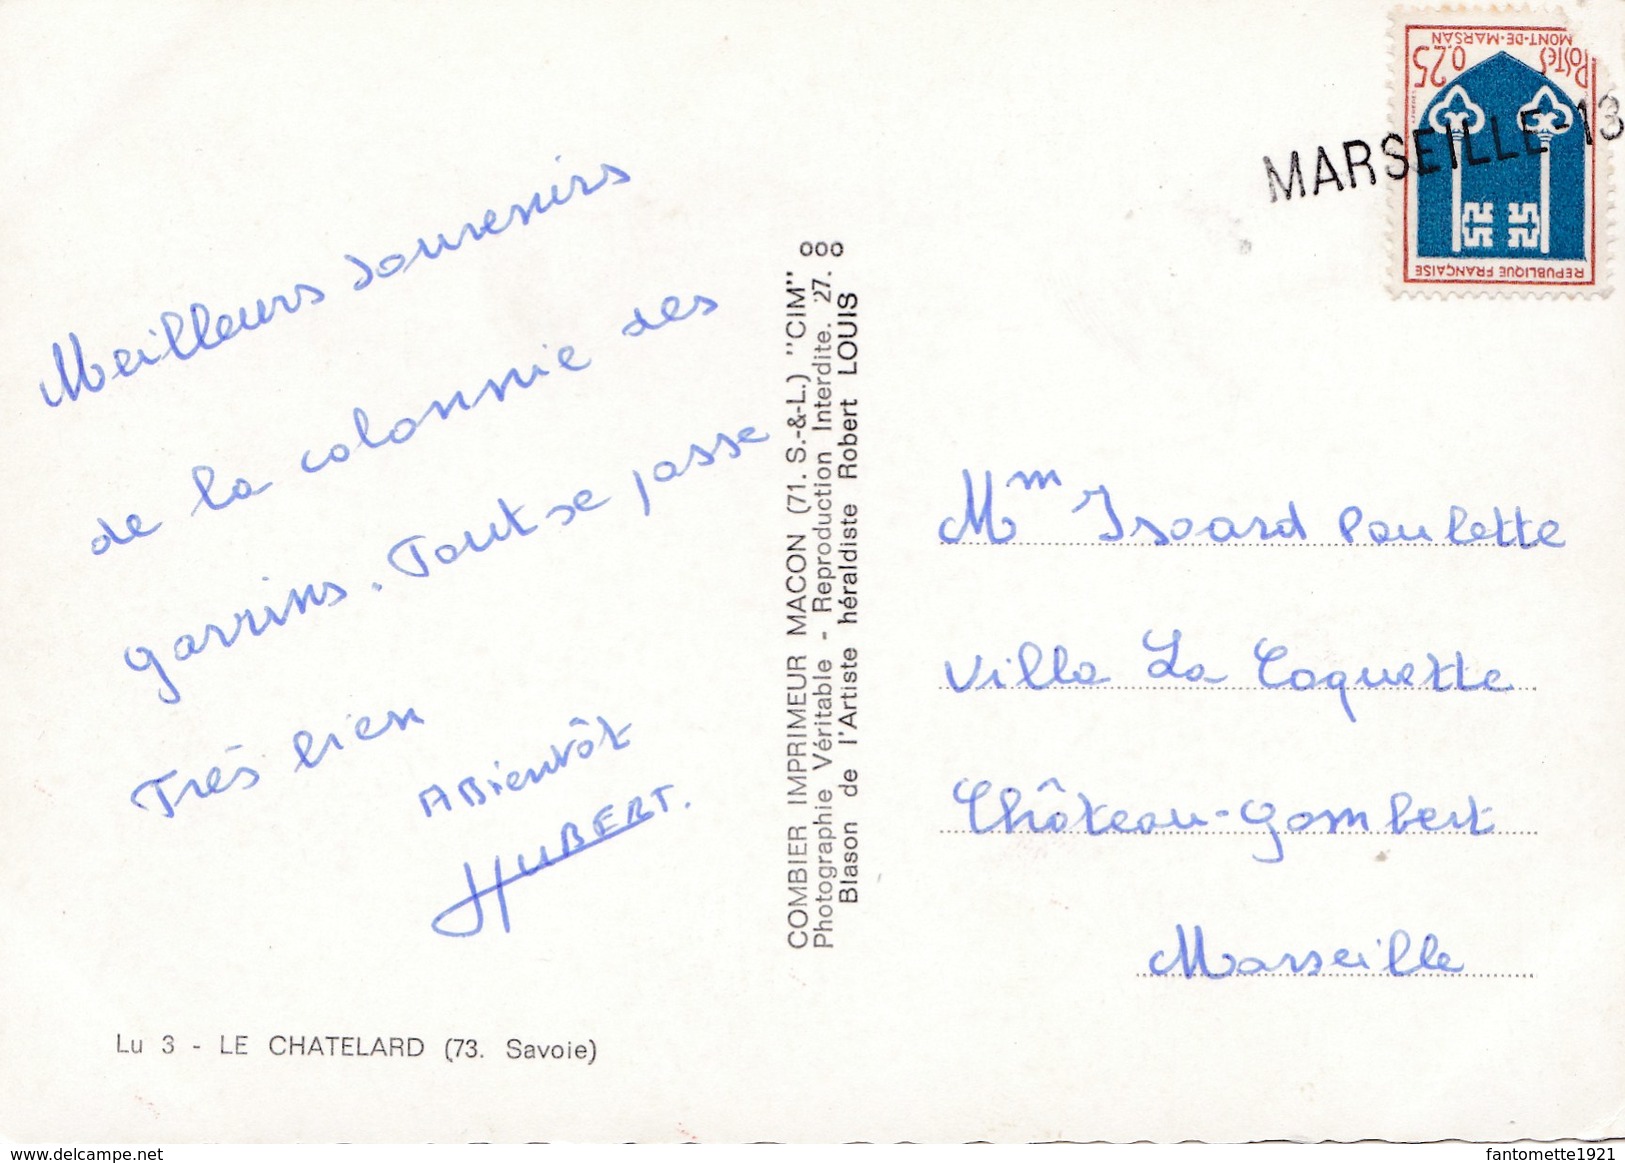 Meilleurs souvenirs
de la colonnie des
garrins. Tout se passe
Très bien
A Bientôt
HUBERT.
Lu 3 - LE CHATELARD (73. Savoie)
COMBIER IMPRIMEUR MACON (71. S.-&-L.) "CIM" ooo
Photographie Véritable - Reproduction Interdite. 27. o
Blason de l'Artiste héraldiste Robert LOUIS
MARSEILLE-13
MONT-DE-MARSAN
POSTES 0,25
REPUBLIQUE FRANÇAISE
Mme Isoard Paulette
Villa La Coquette
Château-Gombert
Marseille
delcampe.net
fantomette1921